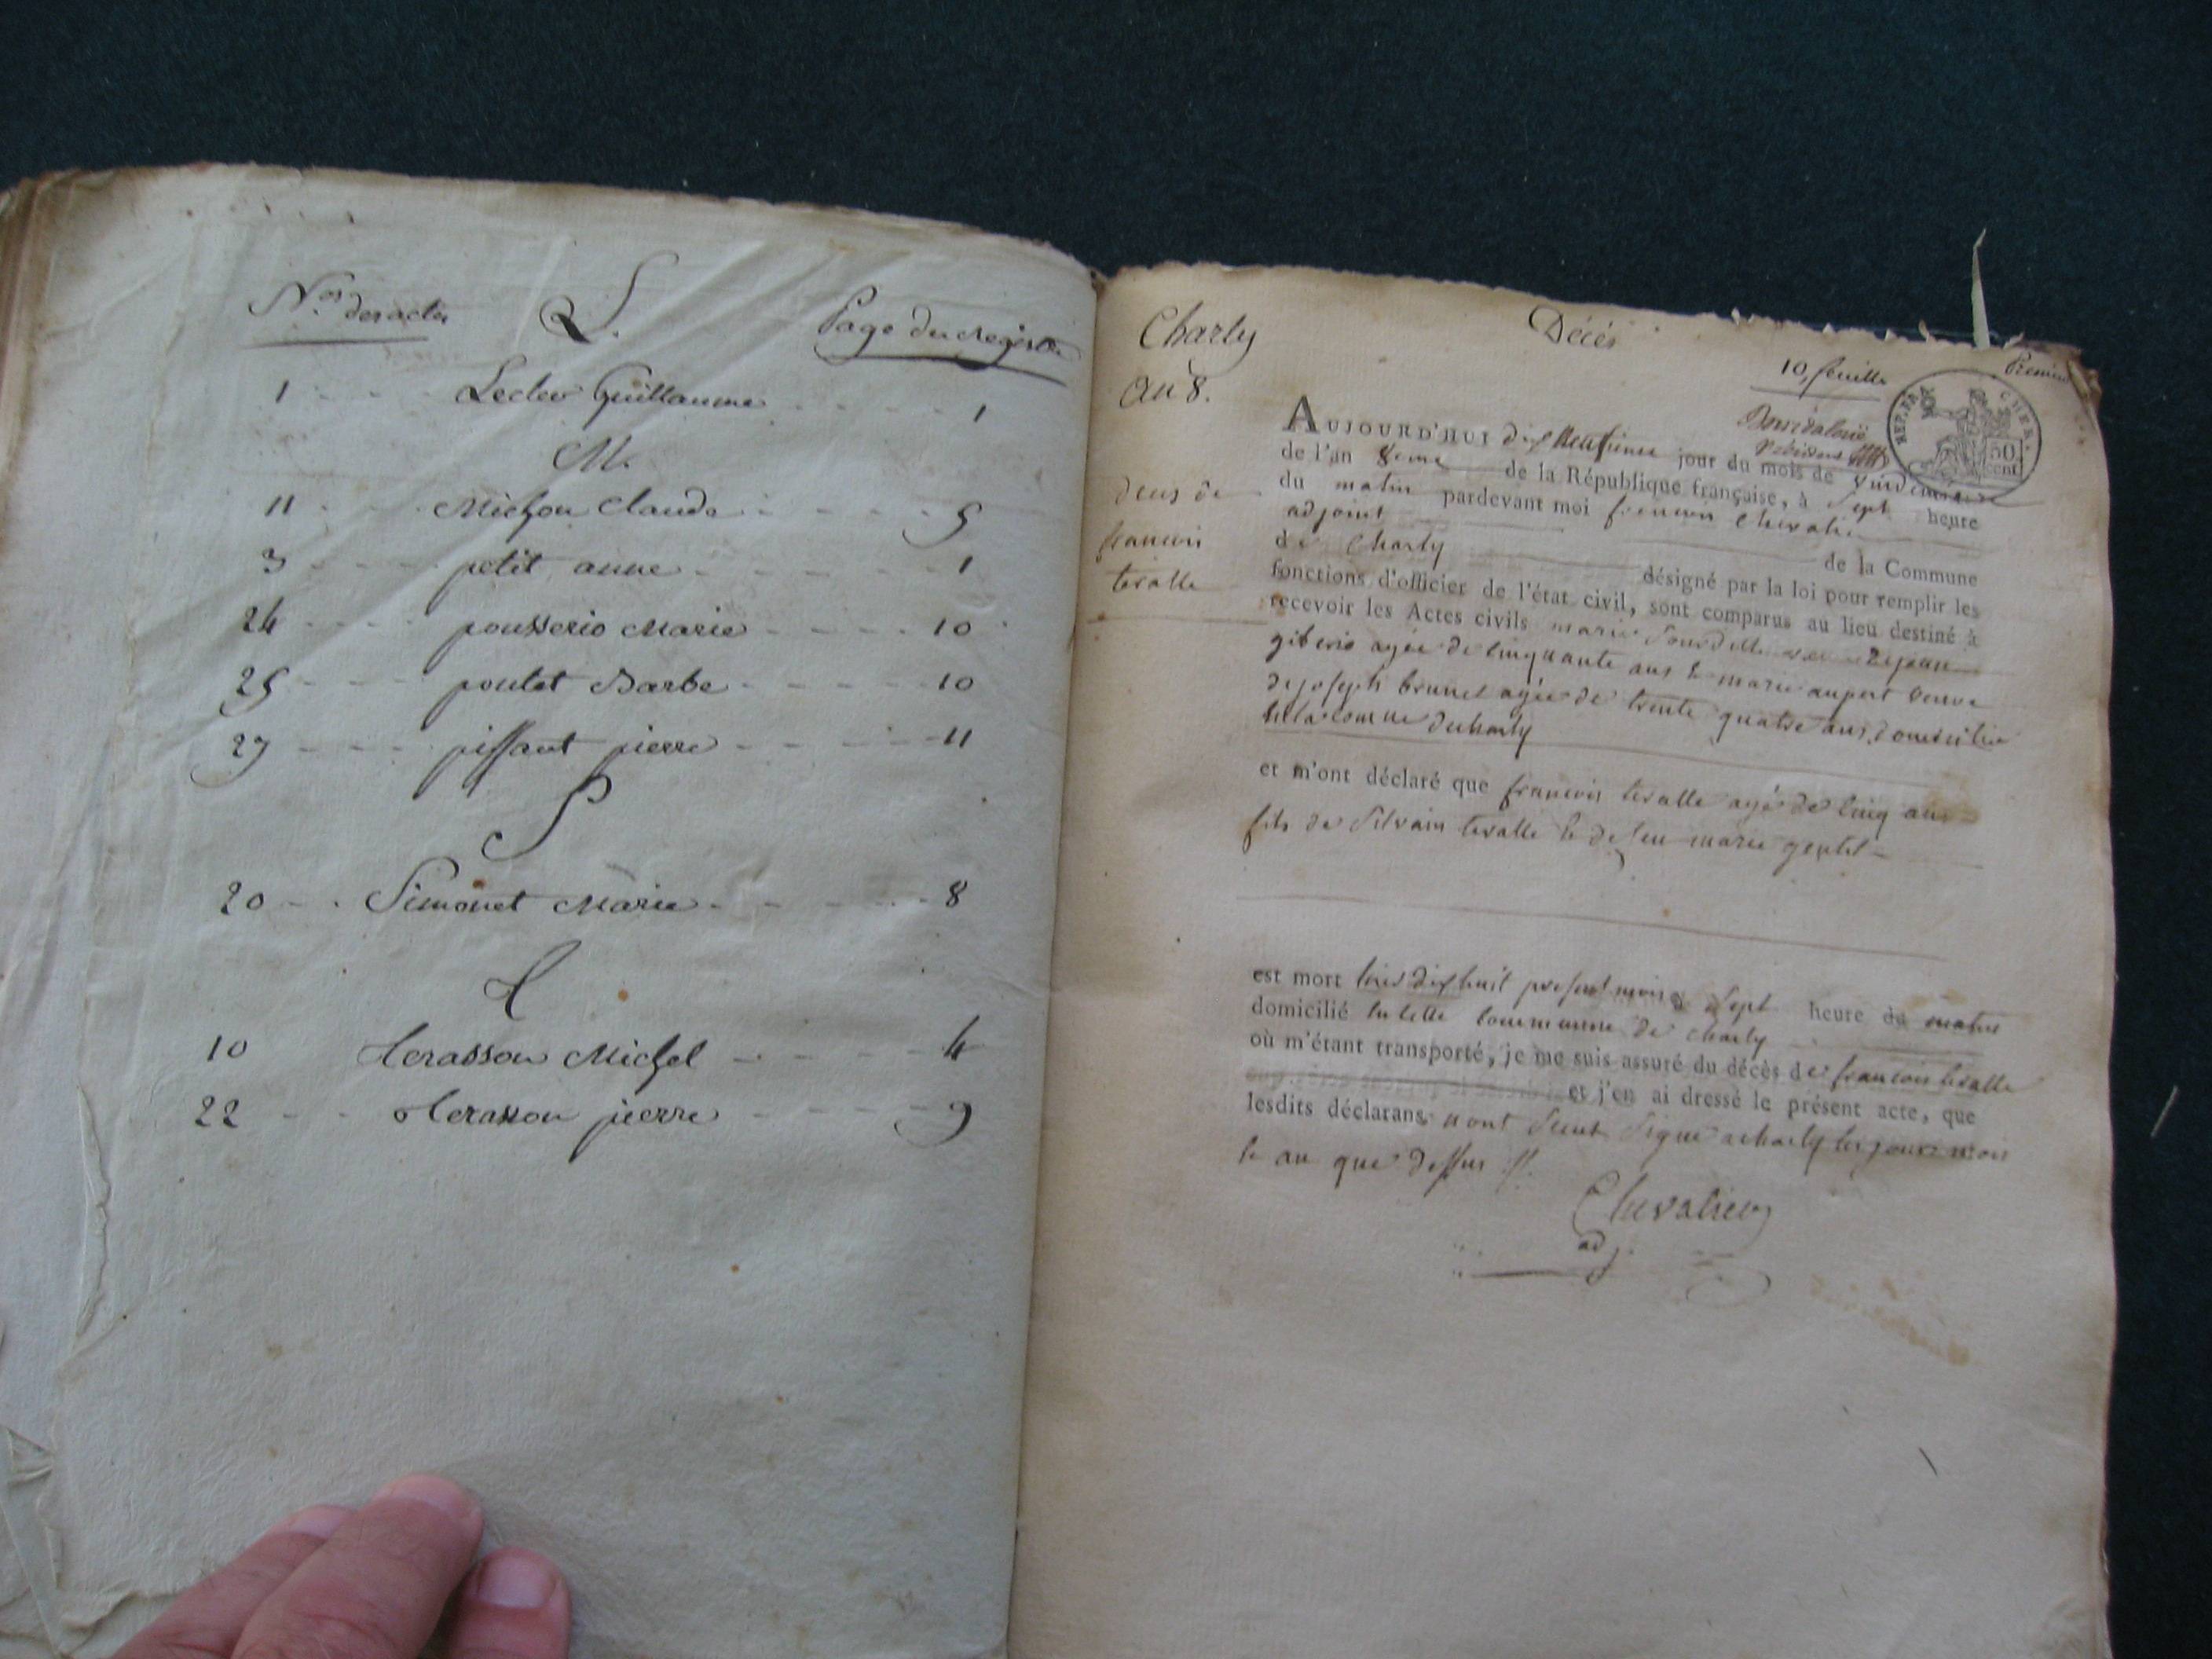 Nos. des actes L. Page du Registre
1 Leclerc Guillaume 1
M.
11 Michou Claude 5
3 petit anne 1
24 pousserio Marie 10
25 poulet Barbe 10
27 piffaut pierre 11
S
20 Simonet Marie 8
T
10 Terasson Michel 4
22 Terasson pierre 9
Charly
an 8.
Décès
10, feuille
Premier
REP. FRA. CHER.
50 cent
deces de
francois
teralle
AUJOURD'HUI dix Neufieme jour du mois de Vindemiaire
de l'an 8eme de la République française, à Sept heure
du matin pardevant moi francois Chevalier
adjoint de la Commune
de Charly désigné par la loi pour remplir les
fonctions d'officier de l'état civil, sont comparus au lieu destiné à
recevoir les Actes civils marie de jean
agée de cinquante ans & marie aupert veuve
de joseph brunet agée de trente quatre ans,
decharly
et m'ont déclaré que francois teralle agé de cinq ans
fils de Silvain teralle & de feu marie gentil
est mort dix huit present mois a Sept heure du matin
domicilié commune de charly
où m'étant transporté, je me suis assuré du décès de francois teralle
et j'en ai dressé le présent acte, que
lesdits déclarans nont Signé a charly les jour mois
& an que dessus //.
Chevalier
adj.